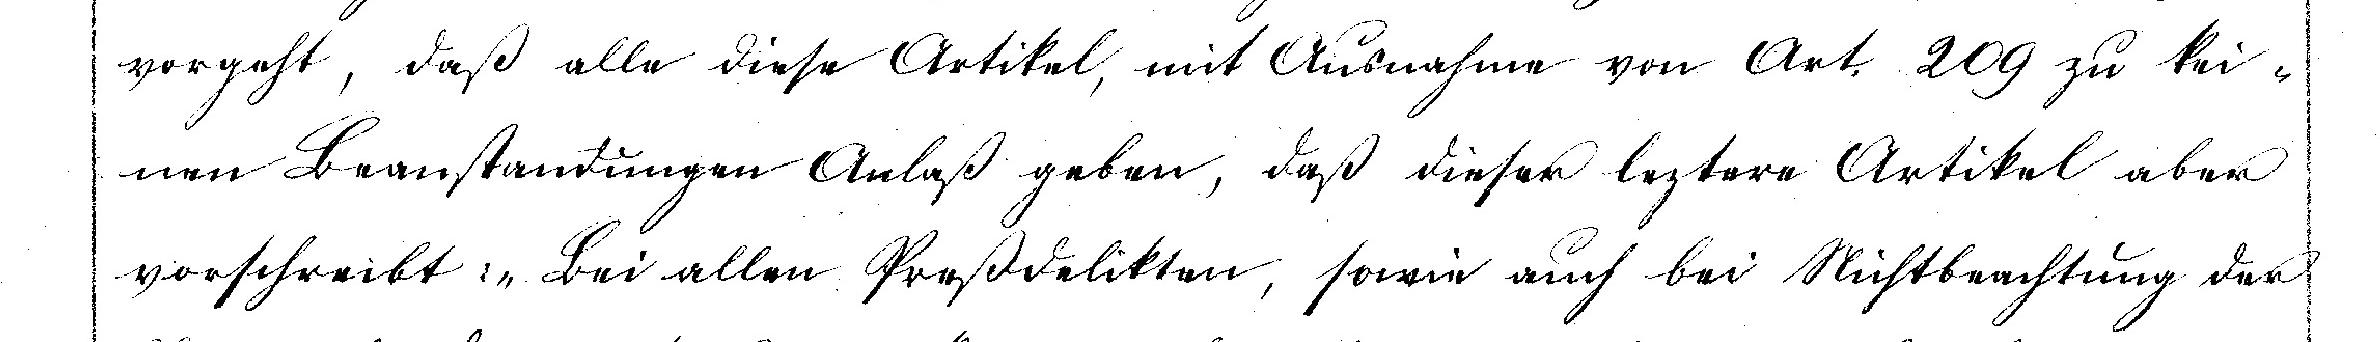 vorgeht, daß alle diese Artikel, mit Ausnahme von Art. 209 zu kei-
nen Beanstandungen Anlaß geben, daß dieser leztere Artikel aber
vorschreibt: „Bei allen Preßdelikten, sowie auch bei Nichtbeachtung der